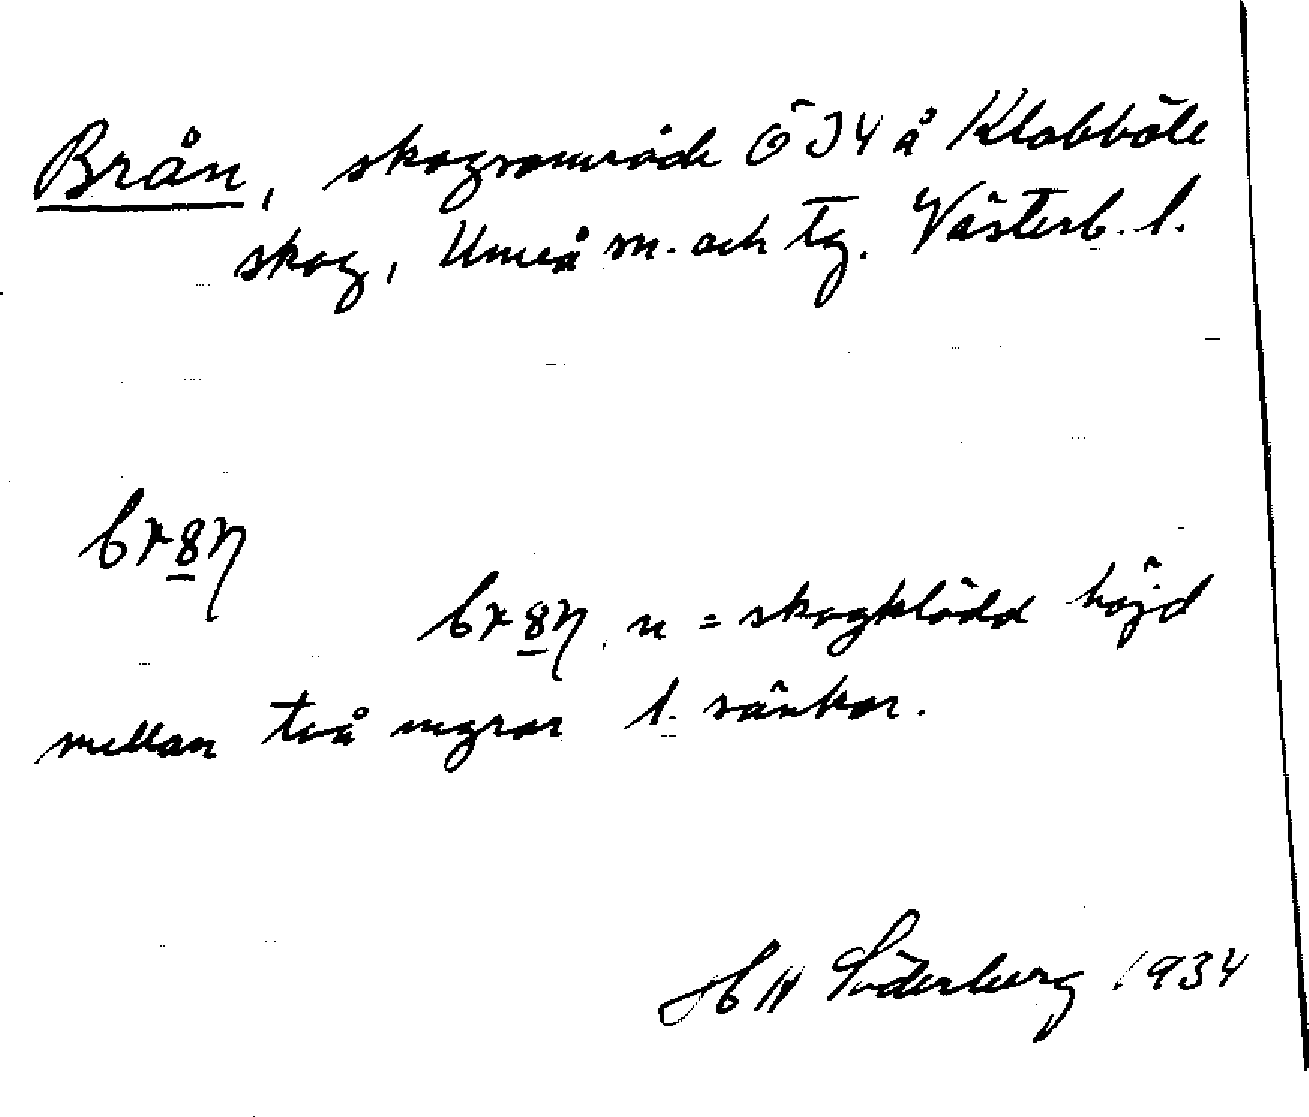 Brån, skogsområde ÖJ4 å Klabböle
skog, Umeå sn. och tg. Västerb. l.
br8n
br8n, n = skogklädd höjd
mellan två myrar l. sänkor.
Söderberg 1934